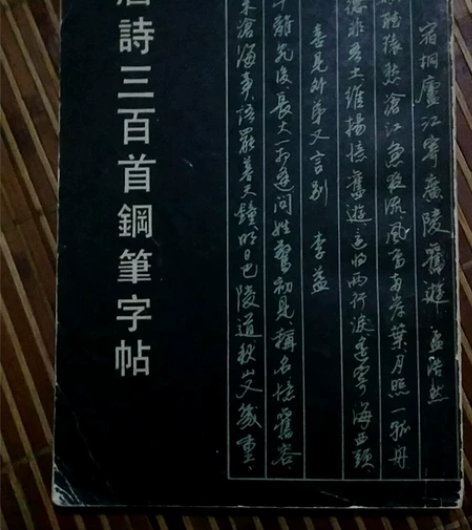 宿桐廬江寄廣陵舊遊 孟浩然
聽猿愁滄江急夜流風鳴兩岸葉月照一孤舟
德非吾土維揚憶舊遊還將兩行淚遙寄海西頭
喜見外弟又言別 李益
年離亂後長大一相逢問姓驚初見稱名憶舊容
來滄海事語罷暮天鐘明日巴陵道秋山又幾重
唐詩三百首鋼筆字帖